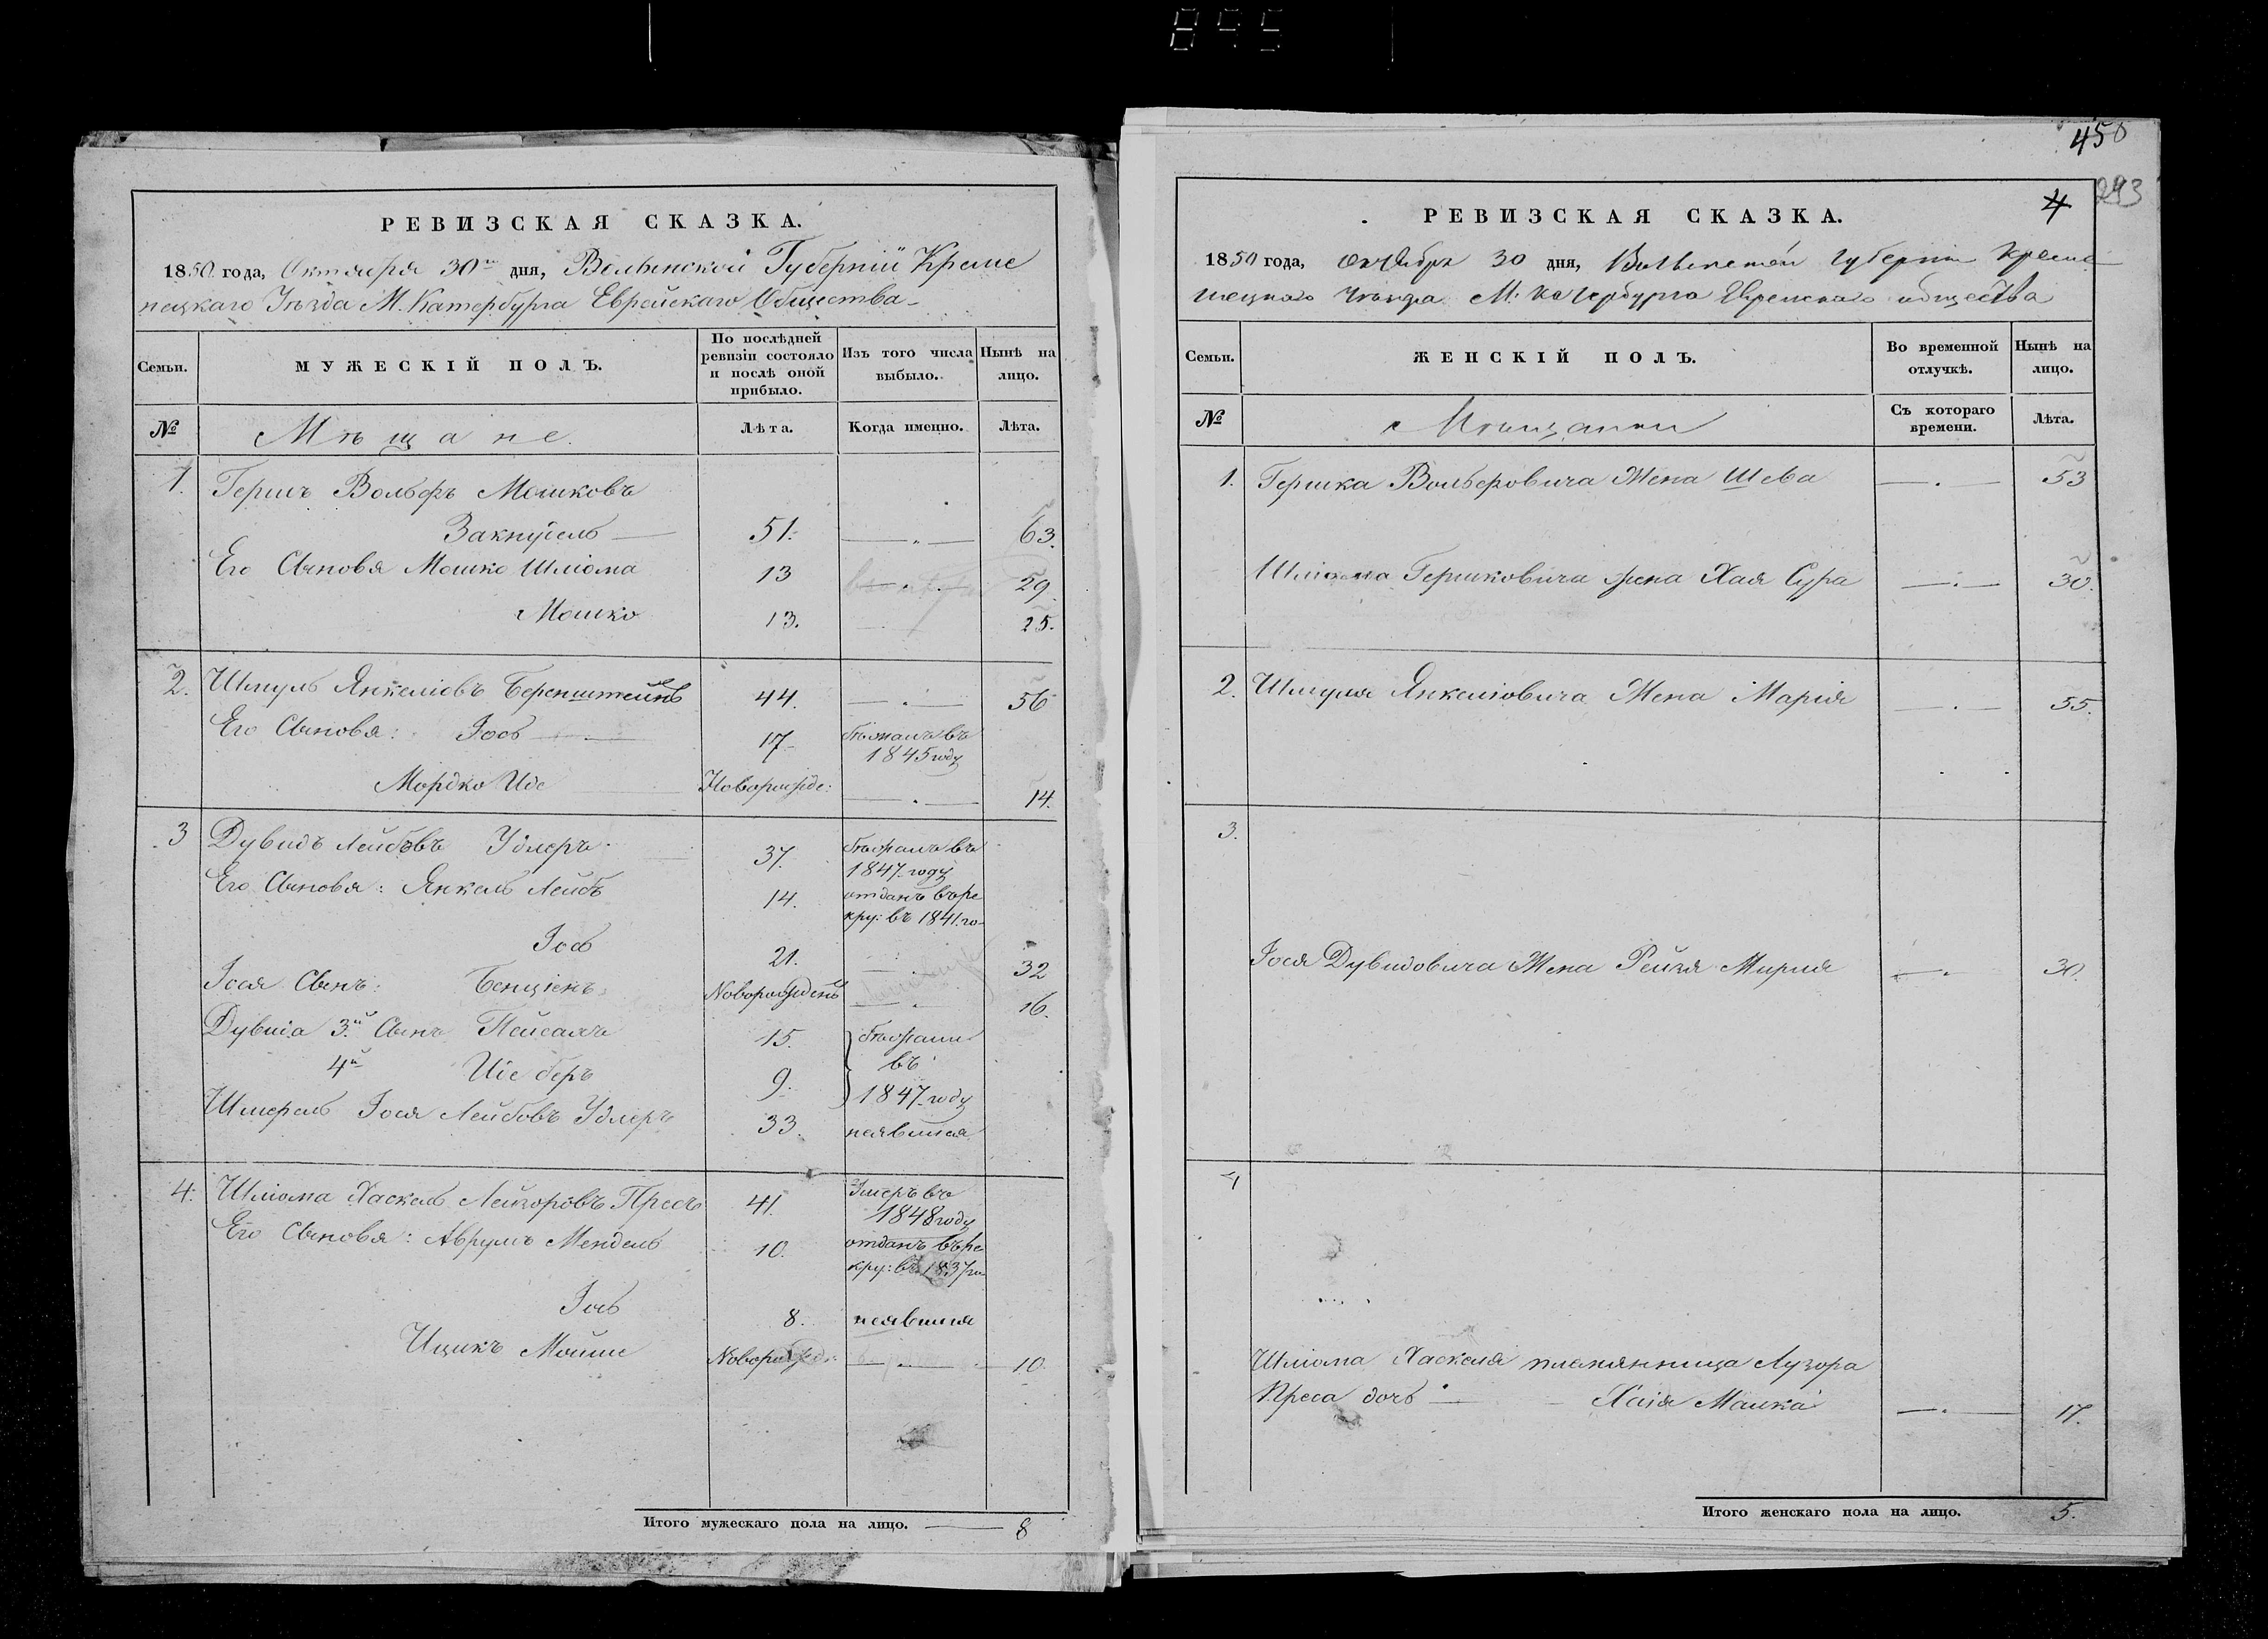 895
РЕВИЗСКАЯ СКАЗКА.
1850 года, Октября 30го дня, Волынской Губерніи Креме
нецкаго Уѣзда М. Катербурга Еврейскаго Общества
Семьи.
МУЖЕСКІЙ ПОЛЪ.
По послѣдней ревизіи состояло и послѣ оной прибыло.
Изъ того числа выбыло.
Нынѣ на лицо.
№
Мѣщане.
Лѣта.
Когда именно.
Лѣта.
1. Гершъ Вольфъ Мошковъ
51. 63.
Его Сыновья Мошко Шліома 13 29.
Мошко 13. 25.
2. Шмуль Янкеліовъ Беренштейнъ 44. 56
Его Сыновья: Іось 17 бѣжалъ въ
1845 году
Мордко Иде Новорожде: 14.
3 Дувидъ Лейбовъ Удлеръ 37. бѣжалъ въ
1847 году
Его Сыновья: Янкель Лейбъ 14. отданъ въ ре
кру: въ 1841 го
Іось 21. 32
Іося Сынъ: Бенціенъ Новорожденъ 16.
Дувида 3й Сынъ Пейсахъ 15. бѣжали
въ
4й Иіе беръ 9. 1847 году
Шмерель Іося Лейбовъ Удлеръ 33. неявился
4. Шліома Хаскель Лейзоровъ Пресъ 41. Умеръ въ
1848 году
Его Сыновья: Аврумъ Мендель 10. отданъ въ ре
кру: въ 1837 го
Іось 8. неявился
Ицикъ Мойше Новорожде: 10.
Итого мужескаго пола на лицо. 8
450
293
4
РЕВИЗСКАЯ СКАЗКА.
1850 года, октября 30 дня, Волынской губерніи Креме
нецкаго уѣзда М. Катербурга Еврейскаго общества
Семьи.
ЖЕНСКІЙ ПОЛЪ.
Во временной отлучкѣ.
Нынѣ на лицо.
№
Мѣщанки
Съ котораго времени.
Лѣта.
1. Гершка Вольфовича Жена Шева 53
Шліома Гершковича жена Хая Сура 30.
2. Шмуля Янкеліовича Жена Марія 55.
3.
Іося Дувидовича Жена Рейзя Мирля 30.
4
Шліома Хаскеля племянница Лузора
Преса дочь Хаія Малка 17.
Итого женскаго пола на лицо. 5.